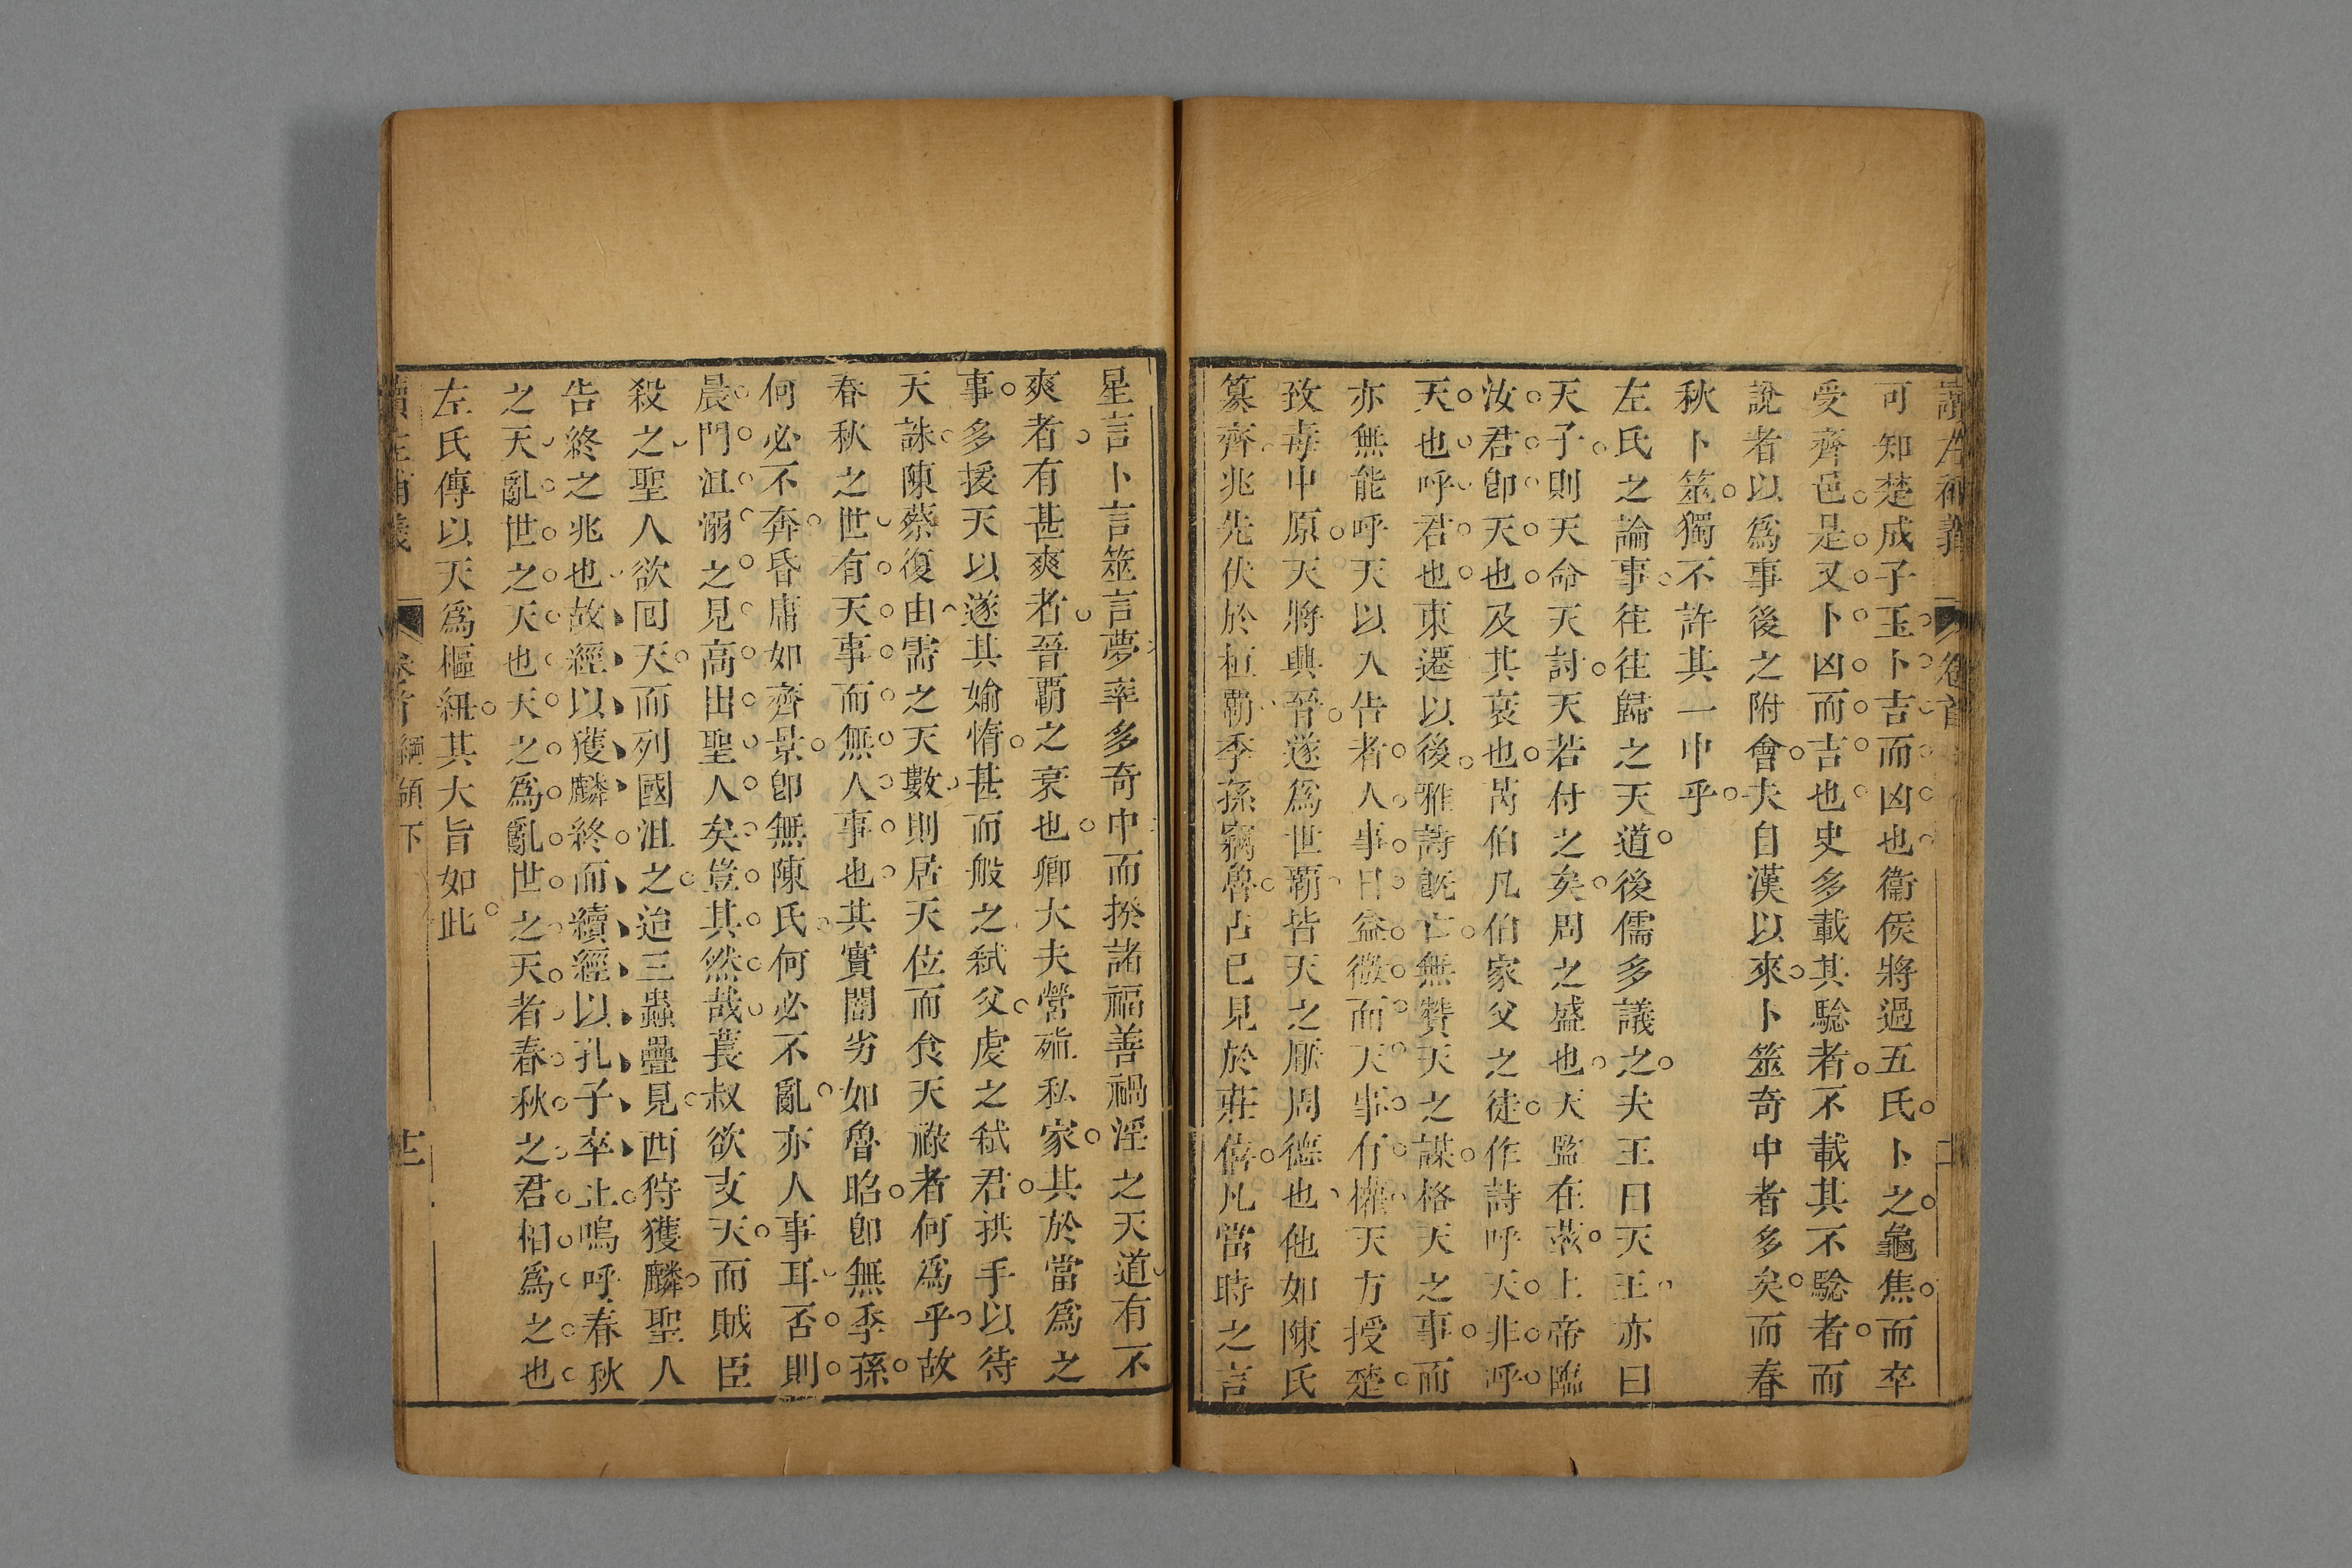 讀左補義 卷首
可知楚成子玉卜吉而凶也衞侯將過五氏卜之龜焦而卒
受齊邑是又卜凶而吉也史多載其騐者不載其不騐者而
說者以爲事後之附會夫自漢以來卜筮奇中者多矣而春
秋卜筮獨不許其一中乎
左氏之論事往往歸之天道後儒多議之夫王曰天王亦曰
天子則天命天討天若付之矣周之盛也天監在茲上帝臨
汝君卽天也及其衰也芮伯凡伯家父之徒作詩呼天非呼
天也呼君也東遷以後雅詩旣亡無贊天之謀格天之事而
亦無能呼天以入告者人事日益微而天事行權天方授楚
致毒中原天將興晉遂爲世覇皆天之厭周德也他如陳氏
篡齊兆先伏於桓覇季孫竊魯占已見於莊僖凡當時之言
星言卜言筮言夢率多奇中而揆諸福善禍淫之天道有不
爽者有甚爽者晉覇之衰也卿大夫營殖私家其於當爲之
事多援天以遂其媮惰甚而般之弑父虔之弑君拱手以待
天誅陳蔡復由需之天數則居天位而食天祿者何爲乎故
春秋之世有天事而無人事也其實闇劣如魯昭卽無季孫
何必不奔昏庸如齊景卽無陳氏何必不亂亦人事耳否則
晨門沮溺之見高出聖人矣豈其然哉萇叔欲支天而賊臣
殺之聖人欲囘天而列國沮之迨三蟲疊見西狩獲麟聖人
告終之兆也故經以獲麟終而續經以孔子卒止嗚呼春秋
之天亂世之天也天之爲亂世之天者春秋之君相爲之也
左氏傳以天爲樞紐其大旨如此
讀左補義 卷首 綱領下 十二